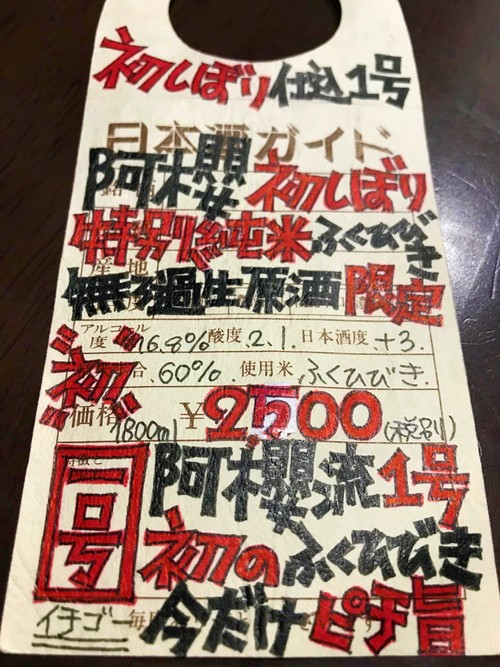 初しぼり仕込1号
日本酒ガイド
阿櫻 初しぼり
特別純米ふくひびき
産地
無濾過生原酒限定
アルコール度 16.8% 酸度 2.1. 日本酒度 +3.
初
合 60% 使用米 ふくひびき.
価格 1800ml ¥2500(税別)
阿櫻流1号
一号
初のふくひびき
イチゴー 今だけピチ旨